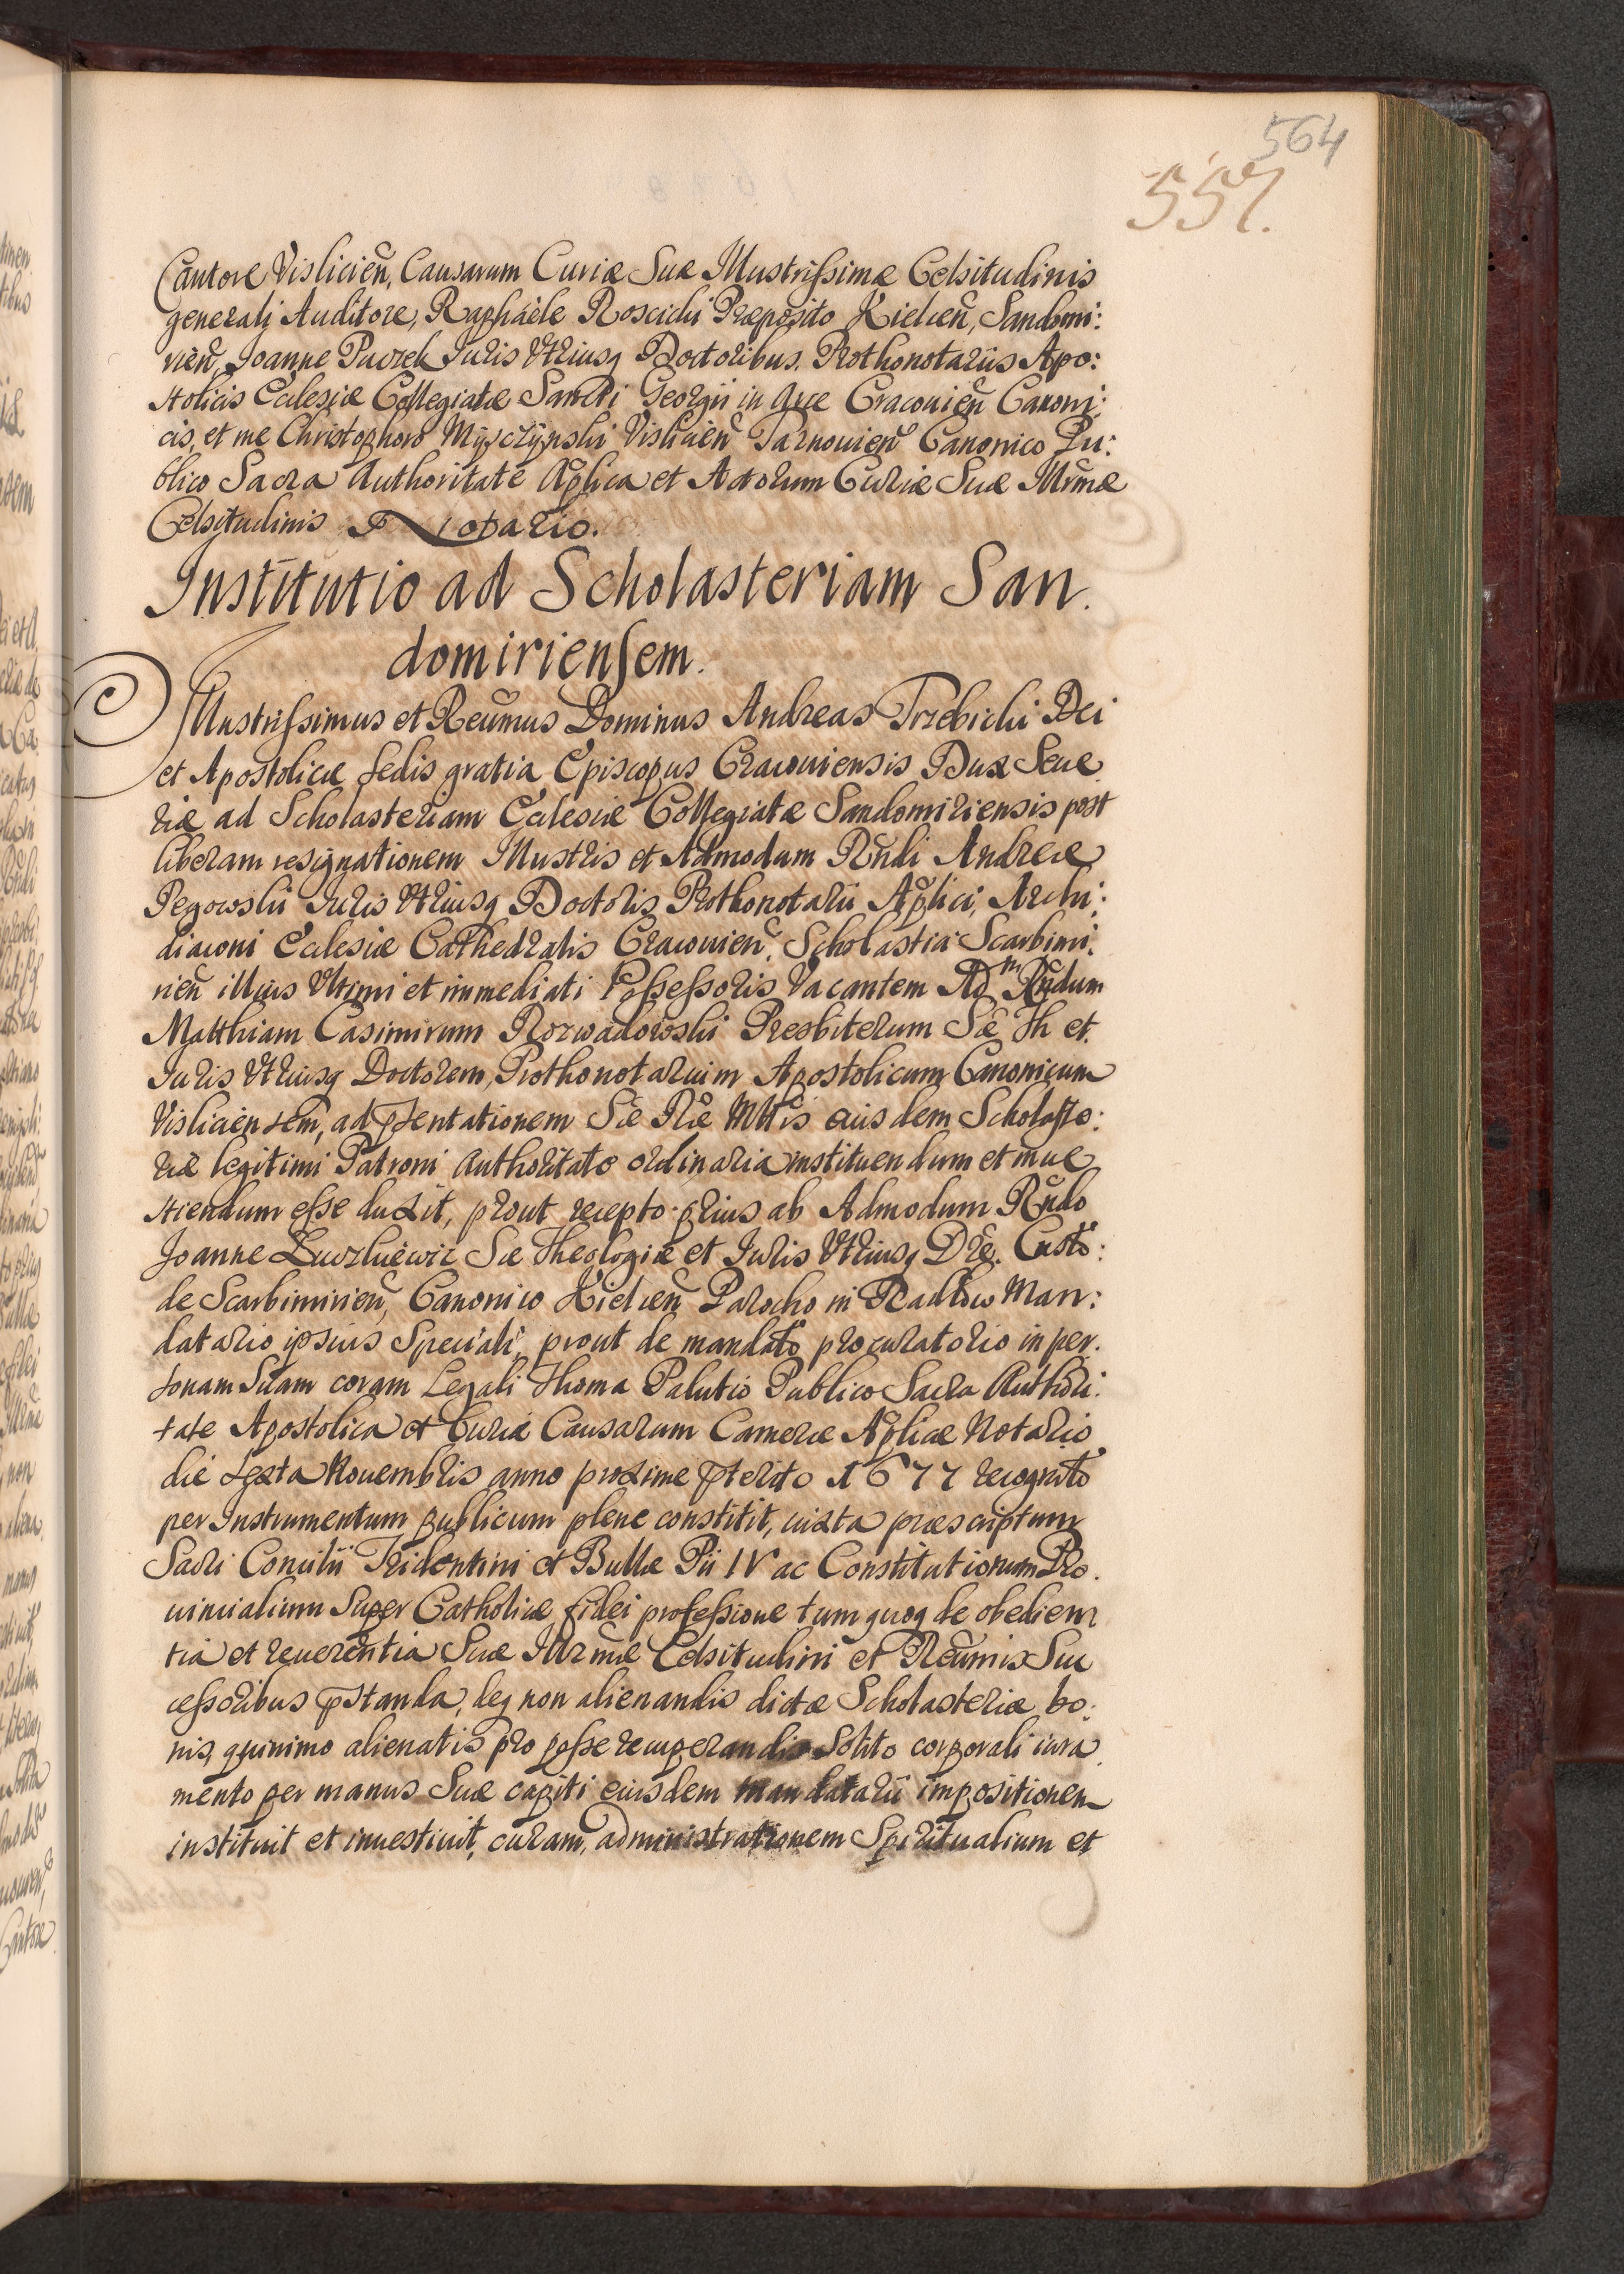 564
557.
Cantore Visliciēn, Causarum Curiæ Suæ Illustrissimæ Celsitudinis
generali Auditore, Raphaële Roscichi Præposito Kielcēn, Sandomi:
riēn, Joanne Pacrek Juris Vtriusq Doctoribus. Prothonotariis Apo:
stolicis Ecclesiæ Collegiatæ Sancti Georgii in Arce Cracouiēn Canoni:
cis, et me Christophoro Myszczÿnski Visliciēn Tarnouiēn Canonico Pu:
blico Sacra Authoritate Aplica et Actorum Curiæ Suæ Illrmæ
Celsitudinis Notario.
Institutio ad Scholasteriam San.
domiriensem.
Illustrissimus et Reūmus Dominus Andreas Trzebicki Dei
et Apostolicæ sedis gratia Episcopus Cracouiensis Dux Seue
riæ ad Scholasteriam Ecclesiæ Collegiatæ Sandomiriensis post
liberam resignationem Illustris et Admodum Rūdi Andreæ
Pegowski Juris Vtriusq Doctoris Prothonotarii Aplici, Archi:
diaconi Ecclesiæ Cathedralis Cracouiēn, Scholastici Scarbimi:
riēn illius Vltimi et immediati Possessoris Vacantem Adm Rūdum
Matthiam Casimirum Rozwadowski Presbiterum Sæ Th et
Juris Vtriusq Doctorem, Prothonotarium Apostolicum Canonicum
Visliciensem, ad pſentationem Sæ Ræ Mttis eiusdem Scholaste:
riæ legitimi Patroni Authoritate ordinaria instituendum et inue
stiendum esse duxit, prout recepto prius ab Admodum Rūdo
Joanne Luczkiewic Sæ Theologiæ et Juris Vtriusq Dre. Custo:
de Scarbimiriēn, Canonico Kielcēn Parocho in Radłow Man:
datario ipsius Speciali, prout de mandato procuratorio in per.
sonam Suam coram Legali Thoma Palutio Publico Sacra Authori:
tate Apostolica et Curiæ Causarum Cameræ Apliæ Notario
die sexta Nouembris anno proxime pterito 1677 recognito
per Instrumentum publicum plene constitit, iuxta præscriptum
Sacri Concilii Tridentini et Bullæ Pii IV ac Constitutionum Pro.
uincialium Super Catholicæ fidei professione tum quoq de obedien
tia et reuerentia Suæ Illrmæ Celsitudini et Reūmis Suc
cessoribus pstanda, deq non alienandis dictæ Scholasteriæ bo:
nis, quinimo alienatis pro posse recuperandis Solito corporali iura
mento per manus Suæ capiti eiusdem mandatarii impositionem
instituit et inuestiuit, curam, administrationem Spiritualium et